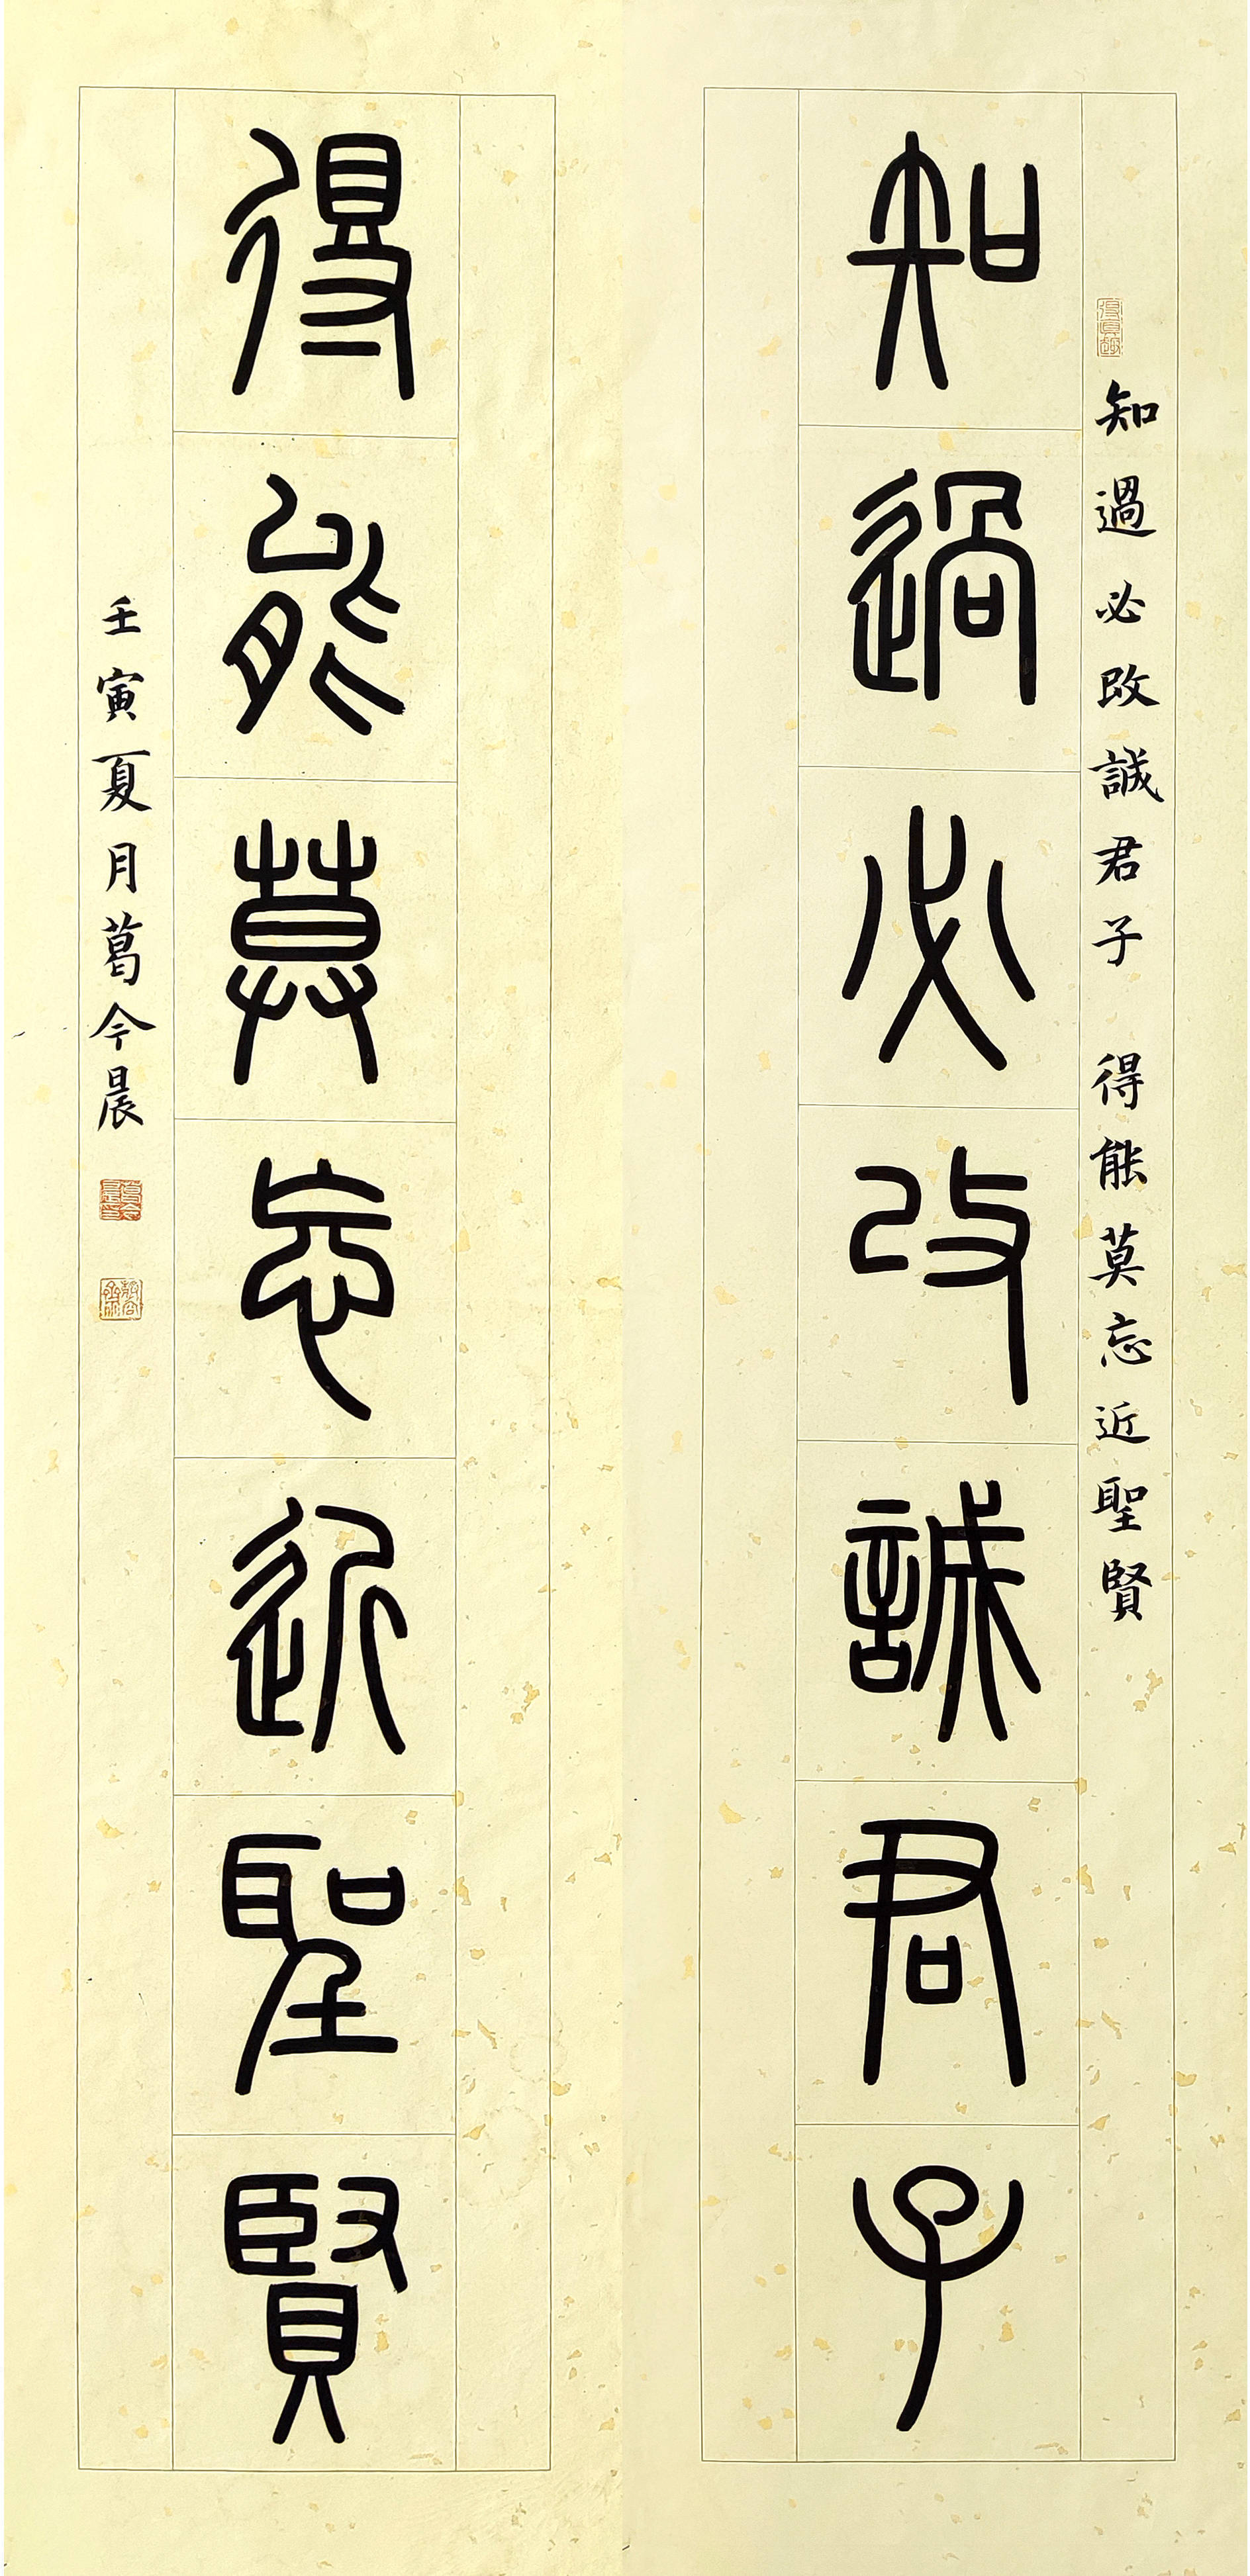 知過必改誠君子 得能莫忘近聖賢
知過必改誠君子
得能莫忘近聖賢
壬寅夏月葛今晨